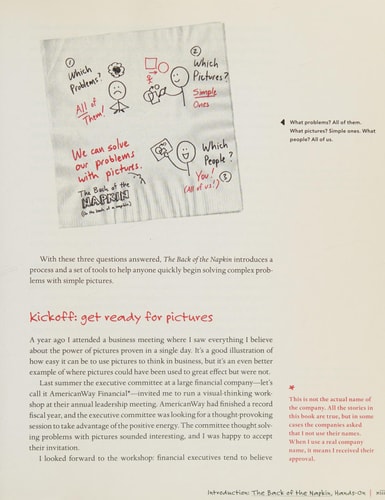 ① Which Problems?
All of Them!
② Which Pictures?
Simple Ones
We can solve
our problems
with pictures.
The Back of the
NAPKIN
(on the back of a napkin)
Which
People?
You!
(All of us!) ③
◀ What problems? All of them.
What pictures? Simple ones. What
people? All of us.
With these three questions answered, The Back of the Napkin introduces a
process and a set of tools to help anyone quickly begin solving complex prob-
lems with simple pictures.
kickoff: get ready for pictures
A year ago I attended a business meeting where I saw everything I believe
about the power of pictures proven in a single day. It's a good illustration of
how easy it can be to use pictures to think in business, but it's an even better
example of where pictures could have been used to great effect but were not.
Last summer the executive committee at a large financial company—let's
call it AmericanWay Financial*—invited me to run a visual-thinking work-
shop at their annual leadership meeting. AmericanWay had finished a record
fiscal year, and the executive committee was looking for a thought-provoking
session to take advantage of the positive energy. The committee thought solv-
ing problems with pictures sounded interesting, and I was happy to accept
their invitation.
I looked forward to the workshop: financial executives tend to believe
*
This is not the actual name of
the company. All the stories in
this book are true, but in some
cases the companies asked
that I not use their names.
When I use a real company
name, it means I received their
approval.
Introduction: The Back of the Napkin, Hands-On | xiii